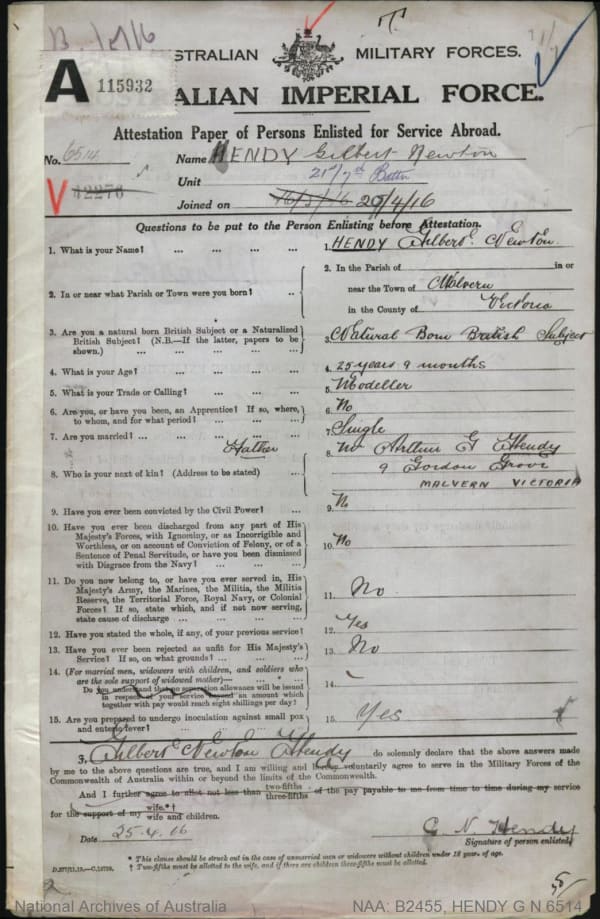 B. 1516
T
AUSTRALIAN MILITARY FORCES.
A 115932
AUSTRALIAN IMPERIAL FORCE.
Attestation Paper of Persons Enlisted for Service Abroad.
No. 6514 Name HENDY Gilbert Newton
V 12276 Unit 21st/7th Battn
Joined on 16/3/16 29/4/16
Questions to be put to the Person Enlisting before Attestation.
1. What is your Name? ... ... ... ... 1. HENDY Gilbert Newton.
2. In or near what Parish or Town were you born? .. 2. In the Parish of in or
near the Town of Malvern
in the County of Victoria
3. Are you a natural born British Subject or a Naturalized British Subject? (N.B.—If the latter, papers to be shown.) ... ... ... ... 3. Natural Born British Subject
4. What is your Age? ... ... ... ... 4. 25 years 9 months
5. What is your Trade or Calling? ... ... ... 5. Modeller
6. Are you, or have you been, an Apprentice? If so, where, to whom, and for what period? ... ... ... 6. No
7. Are you married? ... ... ... ... 7. Single
Father
8. Who is your next of kin? (Address to be stated) ... 8. Mr Arthur G Hendy
9 Gordon Grove
MALVERN VICTORIA
9. Have you ever been convicted by the Civil Power? ... 9. No
10. Have you ever been discharged from any part of His Majesty's Forces, with Ignominy, or as Incorrigible and Worthless, or on account of Conviction of Felony, or of a Sentence of Penal Servitude, or have you been dismissed with Disgrace from the Navy? ... ... 10. No
11. Do you now belong to, or have you ever served in, His Majesty's Army, the Marines, the Militia, the Militia Reserve, the Territorial Force, Royal Navy, or Colonial Forces? If so, state which, and if not now serving, state cause of discharge ... ... ... 11. No
12. Have you stated the whole, if any, of your previous service? 12. Yes
13. Have you ever been rejected as unfit for His Majesty's Service? If so, on what grounds? ... ... 13. No
14. (For married men, widowers with children, and soldiers who are the sole support of widowed mother)— ... ... Do you understand that no separation allowance will be issued in respect of your service beyond an amount which together with pay would reach eight shillings per day? 14. -
15. Are you prepared to undergo inoculation against small pox and enteric fever? ... ... ... 15. Yes
I, Gilbert Newton Hendy do solemnly declare that the above answers made
by me to the above questions are true, and I am willing and hereby voluntarily agree to serve in the Military Forces of the
Commonwealth of Australia within or beyond the limits of the Commonwealth.
And I further agree to allot not less than two-fifths three-fifths of the pay payable to me from time to time during my service
for the support of my wife.*† wife and children.
Date 25.4.16 G. N. Hendy
Signature of person enlisted.
* This clause should be struck out in the case of unmarried men or widowers without children under 18 years of age.
† Two-fifths must be allotted to the wife, and if there are children three-fifths must be allotted.
National Archives of Australia NAA: B2455, HENDY G N 6514